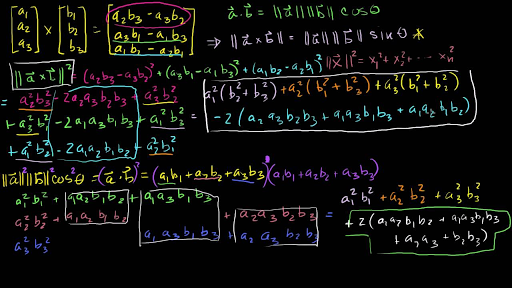 [a₁ a₂ a₃] × [b₁ b₂ b₃] = [a₂b₃ - a₃b₂
a₃b₁ - a₁b₃
a₁b₂ - a₂b₁]
a⃗ · b⃗ = ||a⃗|| ||b⃗|| cosθ
⇒ ||a⃗ × b⃗|| = ||a⃗|| ||b⃗|| sinθ *
||x⃗||² = x₁² + x₂² + ··· xₙ²
||a⃗ × b⃗||² = (a₂b₃ - a₃b₂)² + (a₃b₁ - a₁b₃)² + (a₁b₂ - a₂b₁)²
= a₂²b₃² - 2a₂a₃b₂b₃ + a₃²b₂²
+ a₃²b₁² - 2a₁a₃b₁b₃ + a₁²b₃²
+ a₁²b₂² - 2a₁a₂b₁b₂ + a₂²b₁²
= a₁²(b₂² + b₃²) + a₂²(b₁² + b₃²) + a₃²(b₁² + b₂²)
- 2(a₂a₃b₂b₃ + a₁a₃b₁b₃ + a₁a₂b₁b₂)
||a⃗||²||b⃗||²cos²θ = (a⃗ · b⃗)² = (a₁b₁ + a₂b₂ + a₃b₃)(a₁b₁ + a₂b₂ + a₃b₃)
a₁²b₁² + a₁a₂b₁b₂ + a₁a₃b₁b₃
a₂²b₂² + a₁a₂b₁b₂ + a₂a₃b₂b₃
a₃²b₃² a₁a₃b₁b₃ + a₂a₃b₂b₃
= a₁²b₁² + a₂²b₂² + a₃²b₃²
+ 2(a₁a₂b₁b₂ + a₁a₃b₁b₃
+ a₂a₃ + b₂b₃)